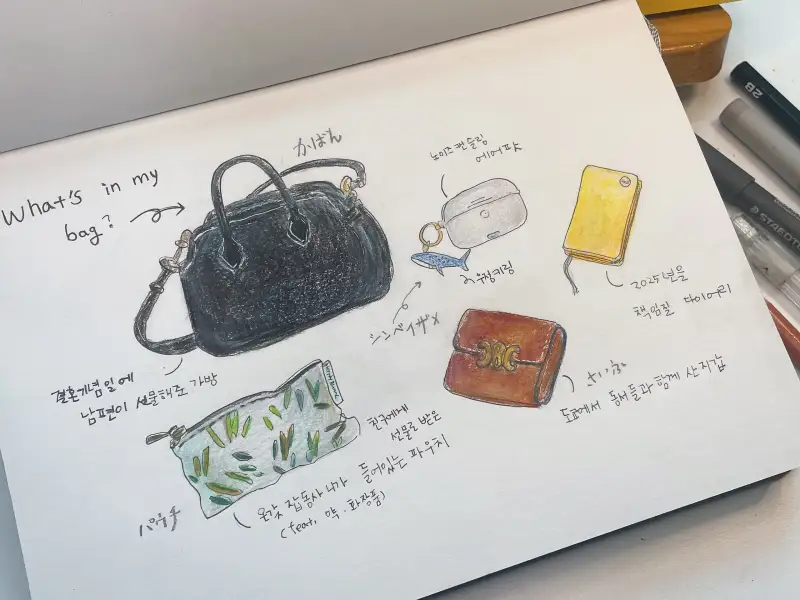 What's in my
bag?
かばん
노이즈 캔슬링
에어팟
우정키링
ジンベイザメ
2025년을
책임질 다이어리
결혼기념일에
남편이 선물해준 가방
さいふ
도쿄에서 동서들과 함께 산 지갑
친구에게
선물로 받은
온갖 잡동사니가 들어있는 파우치
(feat. 약. 화장품)
パウチ
2B
STAEDTL